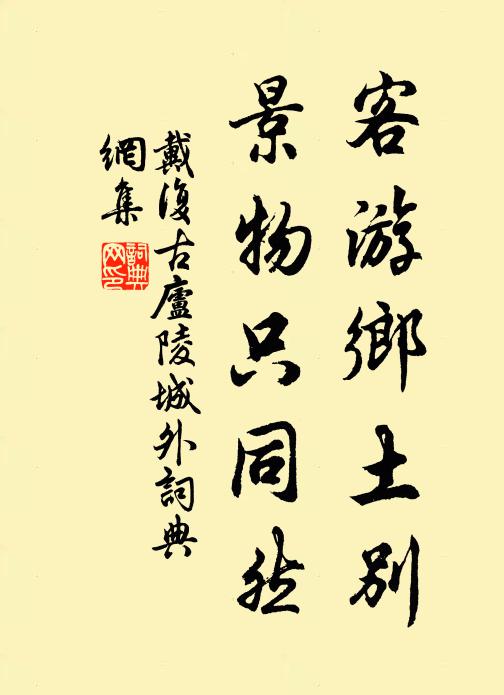 客游鄉土別
景物只同然
戴復古廬陵城外詞典
網集
詞典
网印